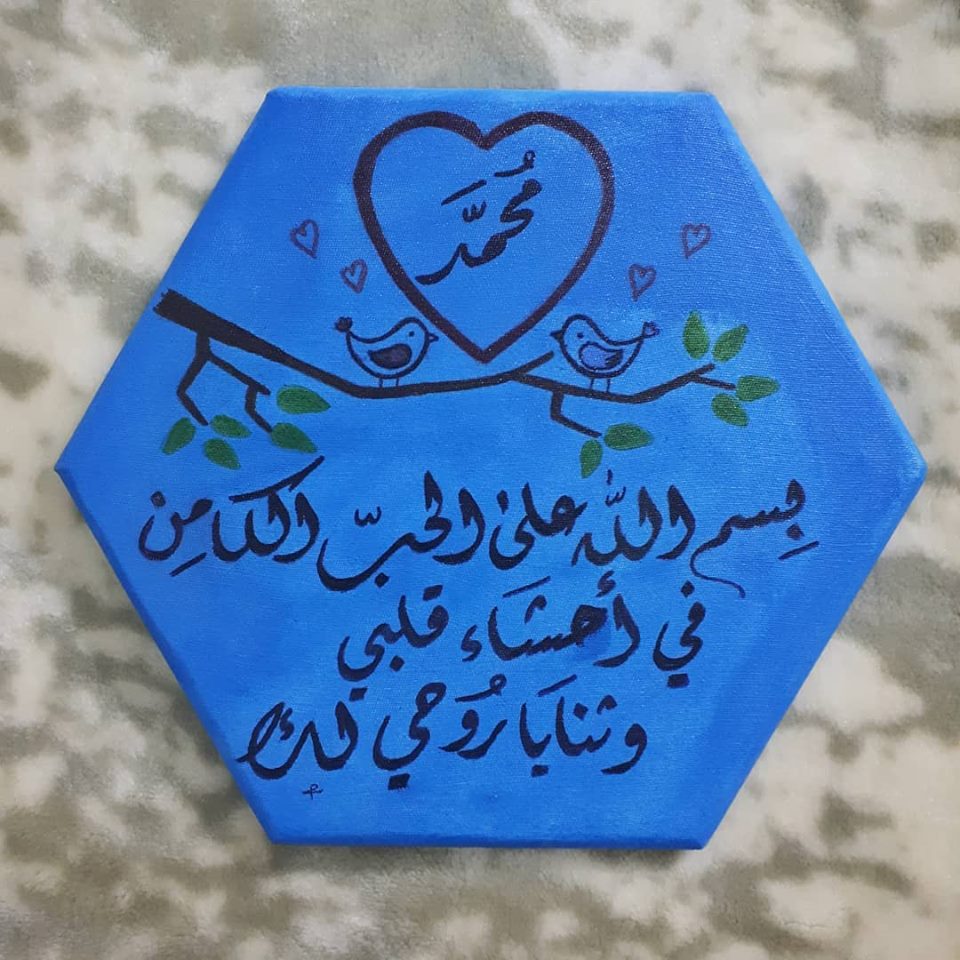 مُحمَّد
بِسم اللّه على الحبّ الكامِن
في أحشَاء قلبي
وثنايَا رُوحي لك